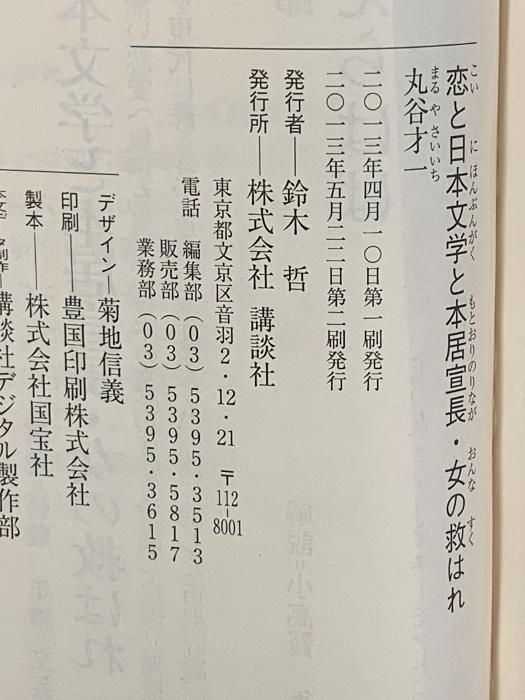 恋と日本文学と本居宣長・女の救はれ
こい にほんぶんがく もとおりのりなが おんな すく
丸谷才一
まるやさいいち
二〇一三年四月一〇日第一刷発行
二〇一三年五月二二日第二刷発行
発行者――鈴木 哲
発行所――株式会社 講談社
東京都文京区音羽2・12・21 〒112-8001
電話 編集部 (03) 5395・3513
販売部 (03) 5395・5817
業務部 (03) 5395・3615
デザイン―菊地信義
印刷――豊国印刷株式会社
製本――株式会社国宝社
講談社デジタル製作部